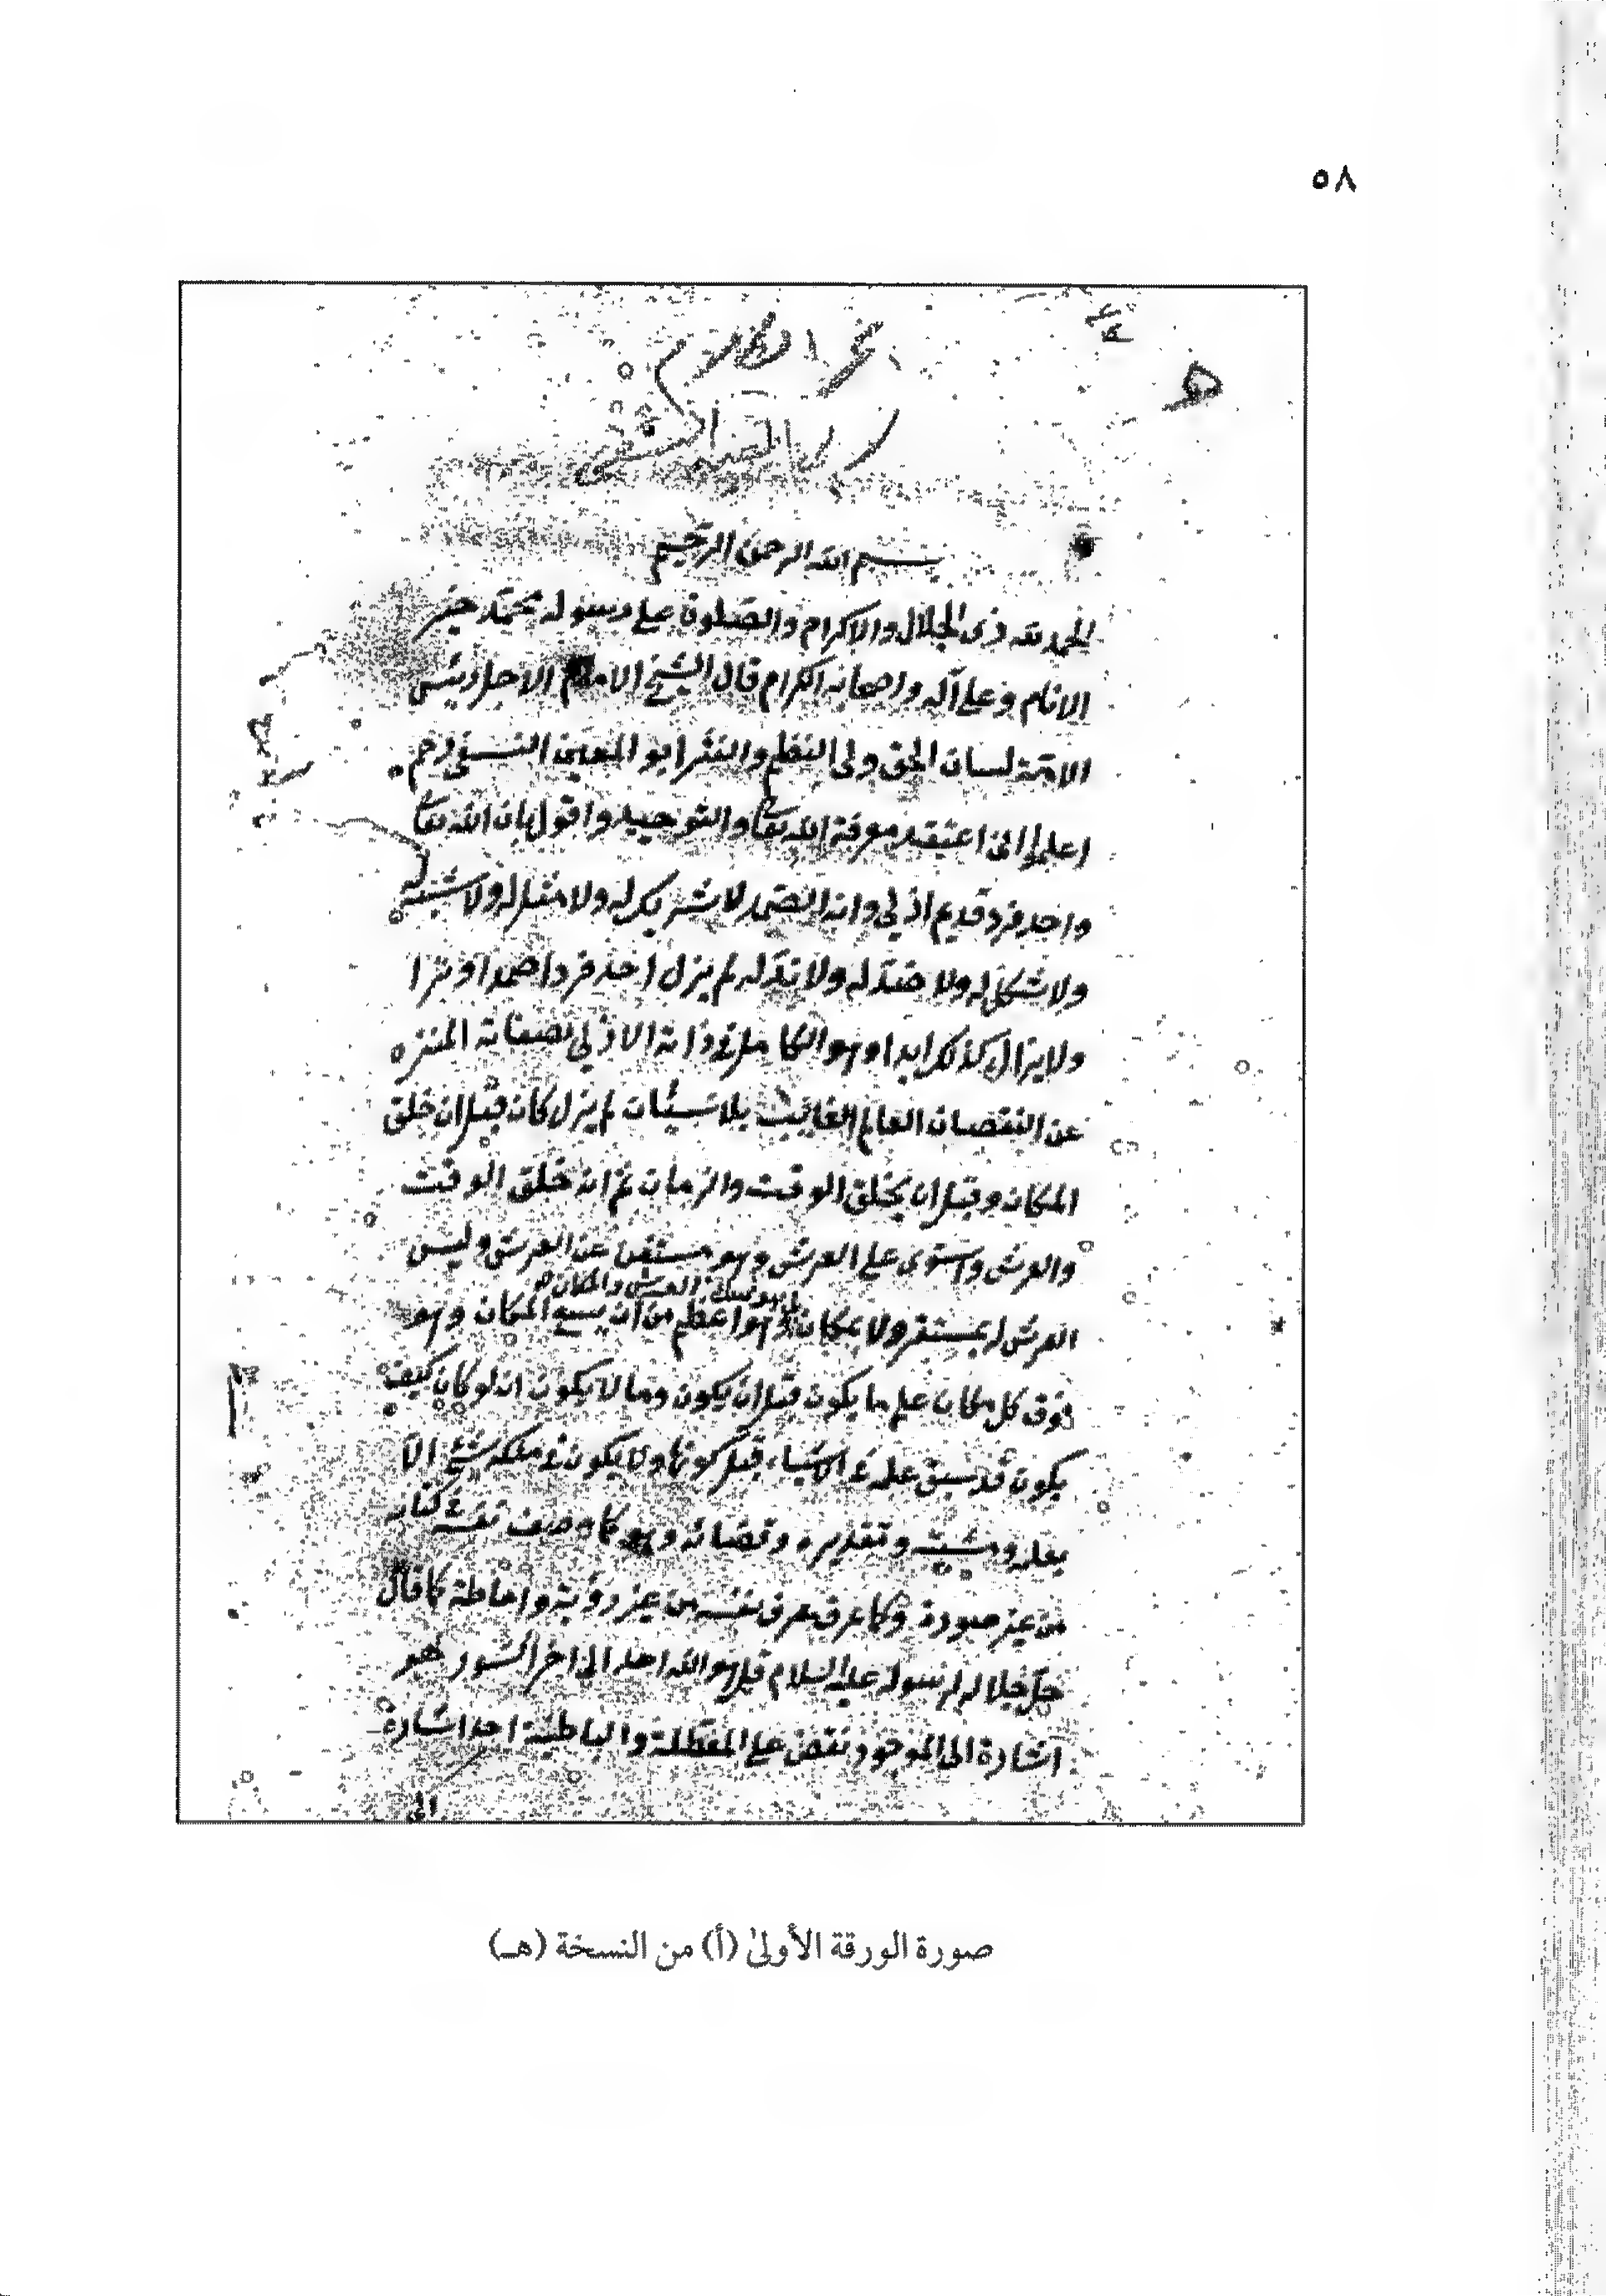 ٥٨
بحر الكلام
هـ
لابي المعين النسفي
بسم الله الرحمن الرحيم
الحمد لله ذى الجلال والاكرام والصلوة على رسوله محمد خير
الانام وعلى آله واصحابه الكرام قال الشيخ الامام الاجل رئيس
الائمة لسان الحق ولى النظم والنثر ابو المعين النسفى رحم
اعلم انى اعتقد معرفة الله تعا والتوحيد واقول بان الله تعا
واحد فرد قديم ازلي وانه الصمد لا شريك له ولا مثل له ولا شبه له
ولا شكل له ولا ضد له ولا ند له لم يزل احد فردا صمدا وترا
ولا يزال كذلك ابدا وهو الكامل في ذاته الازلي بصفاته المنزه
عن النقصان العالم الغائب بلا لم يزل كان قبل ان خلق
المكان وقبل ان يخلق الوقت والزمان ثم انه خلق الوقت
والعرش واستوى على العرش وهو مستغن عن العرش وليس
بل هو يمسك العرش والمكان
العرش له بمستقر ولا بمكان وهو اعظم من ان يسع المكان وهو
فوق كل مكان علم ما يكون قبل ان يكون وما لا يكون ان لو كان كيف
يكون قد سبق علمه في الاشياء قبل كونها ولا يكون في ملكه شئ الا
بعلمه ومشيته وتقديره وقضائه وهو كما وصف نفسه في كتابه
من غير صورة وكما عرف نعرف نفسه من غير رؤية واحاطة كما قال
جل جلاله لرسوله عليه السلام قل هو الله احد الى اخر السور هو
اشارة الى الموجود نقض على المعطلة والباطنية احد اشارة
الى
صورة الورقة الأولىٰ (أ) من النسخة (هـ)